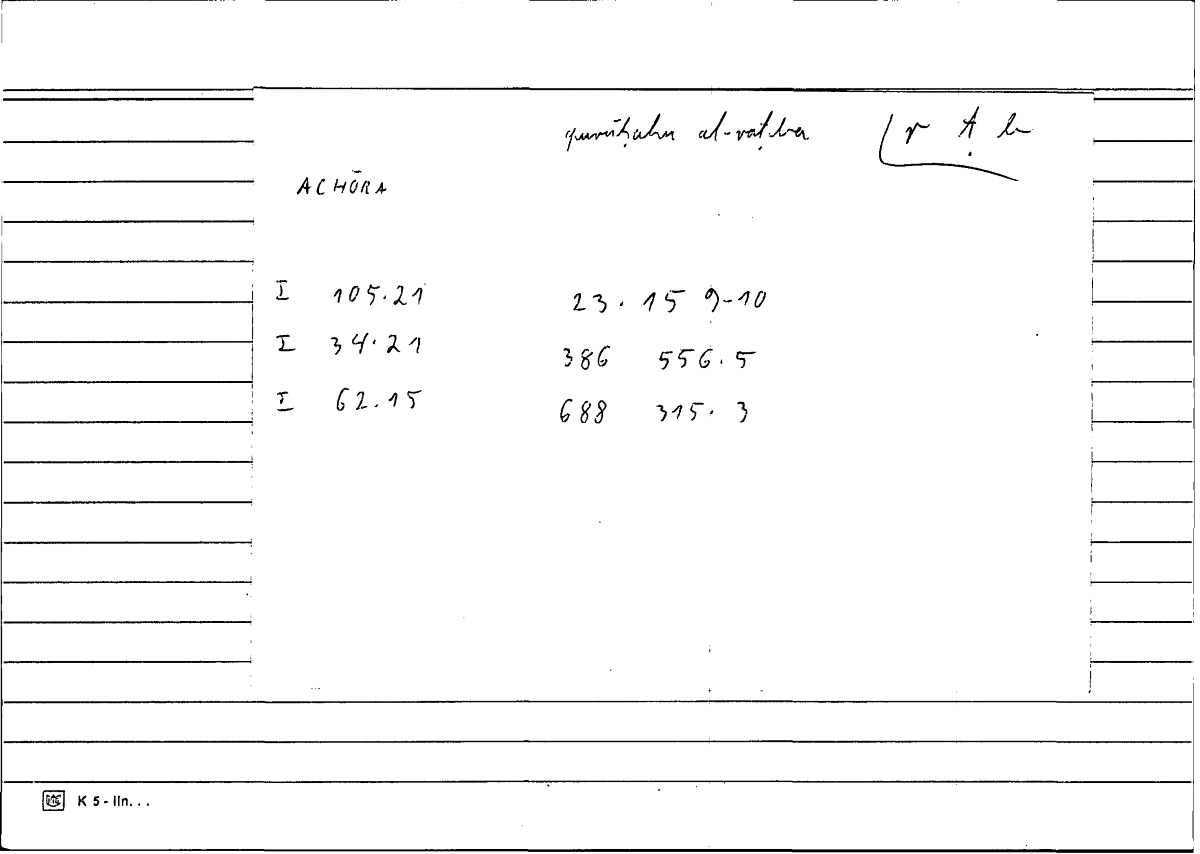 qurūḥahu al-raṭba r ṭ b
ACHŌRA
I 105.21 23. 15 9-10
I 34.21 386 556.5
I 62.15 688 315. 3
K 5 - lin. . .